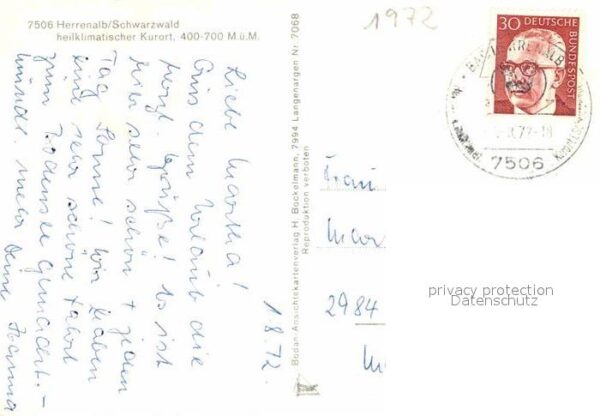 7506 Herrenalb/Schwarzwald
heilklimatischer Kurort, 400-700 M.ü.M.
1972
30 DEUTSCHE BUNDESPOST
BAD HERRENALB
72-18
7506
1.8.72.
Liebe Martha!
Aus dem Urlaub die
herzl. Grüße! Es ist
hier sehr schön + jeden
Tag Sonne! Wir haben
eine sehr schöne Fahrt
zum Bodensee gemacht. –
Deine
Bodan-Ansichtskartenverlag H. Bockelmann, 7994 Langenargen Nr. 7068
Reproduktion verboten
Frau
Mar
2984
privacy protection
Datenschutz